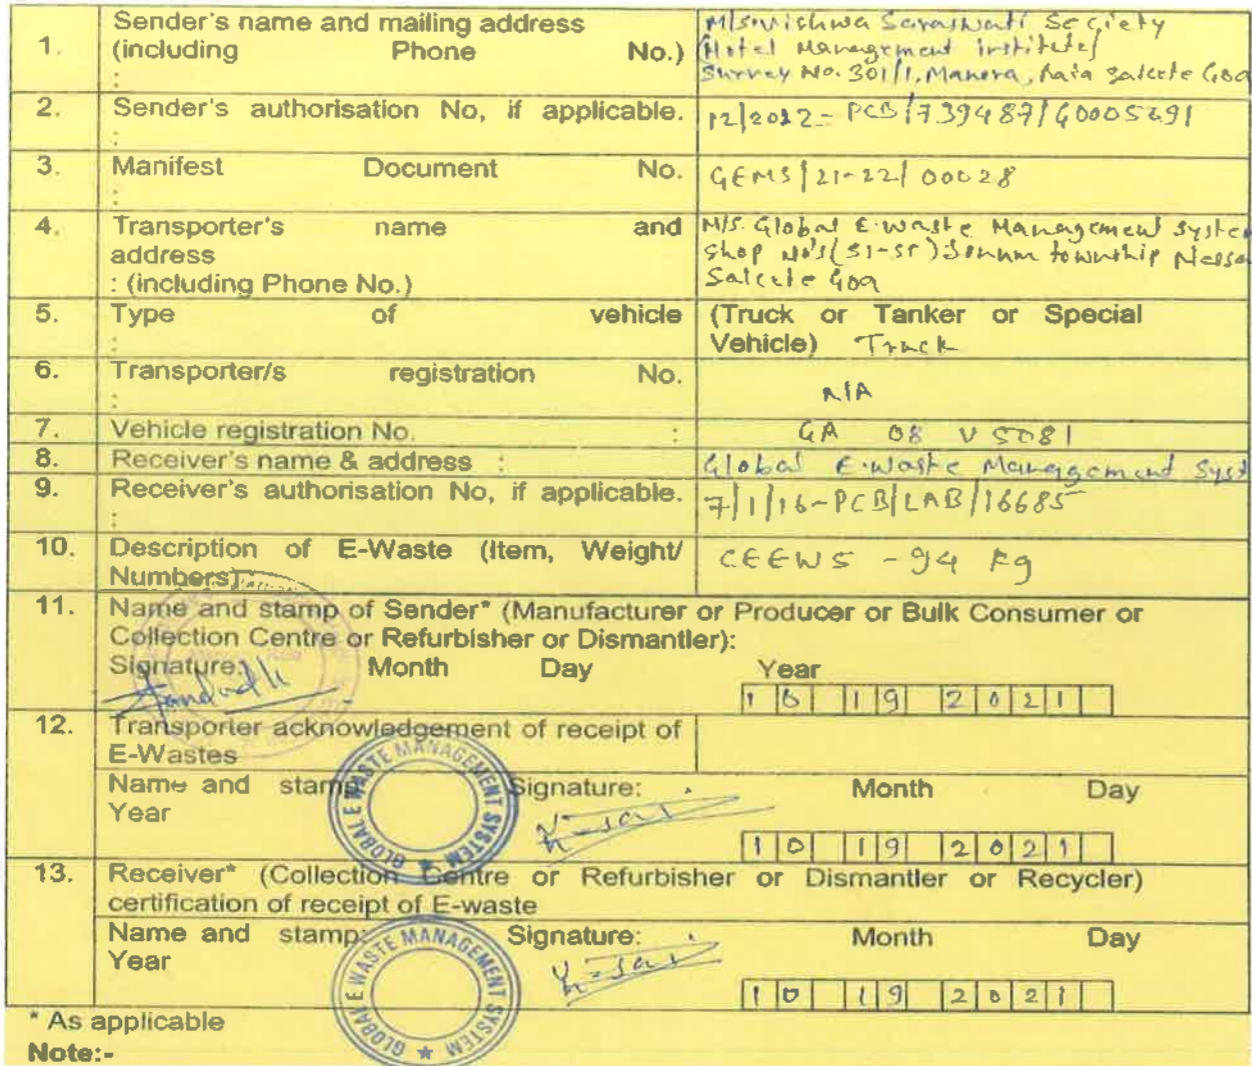 1. Sender's name and mailing address
(including Phone No.)
:
M/s. Vishwa Saraswati Society
(Hotel Management institute)
Survey No. 301/1, Manora, Raia Salcete Goa
2. Sender's authorisation No, if applicable.
:
12/2022-PCB/739487/G0005291
3. Manifest Document No.
:
GEMS/21-22/00028
4. Transporter's name and
address
: (including Phone No.)
M/S. Global E-Waste Management System
Shop No's (S1-S5) township Nessa
Salcete Goa
5. Type of vehicle
:
(Truck or Tanker or Special
Vehicle) Truck
6. Transporter/s registration No.
:
N/A
7. Vehicle registration No. :
GA 08 V 5081
8. Receiver's name & address :
Global E-Waste Management Syst
9. Receiver's authorisation No, if applicable.
:
7/1/16-PCB/LAB/16685
10. Description of E-Waste (Item, Weight/
Numbers):
CEEW5 - 94 Kg
11. Name and stamp of Sender* (Manufacturer or Producer or Bulk Consumer or
Collection Centre or Refurbisher or Dismantler):
Signature: Month Day Year
10 19 2021
12. Transporter acknowledgement of receipt of
E-Wastes
Name and stamp: Signature: Month Day
Year
GLOBAL E WASTE MANAGEMENT SYSTEM
10 19 2021
13. Receiver* (Collection Centre or Refurbisher or Dismantler or Recycler)
certification of receipt of E-waste
Name and stamp: Signature: Month Day
Year
GLOBAL E WASTE MANAGEMENT SYSTEM
10 19 2021
* As applicable
Note:-